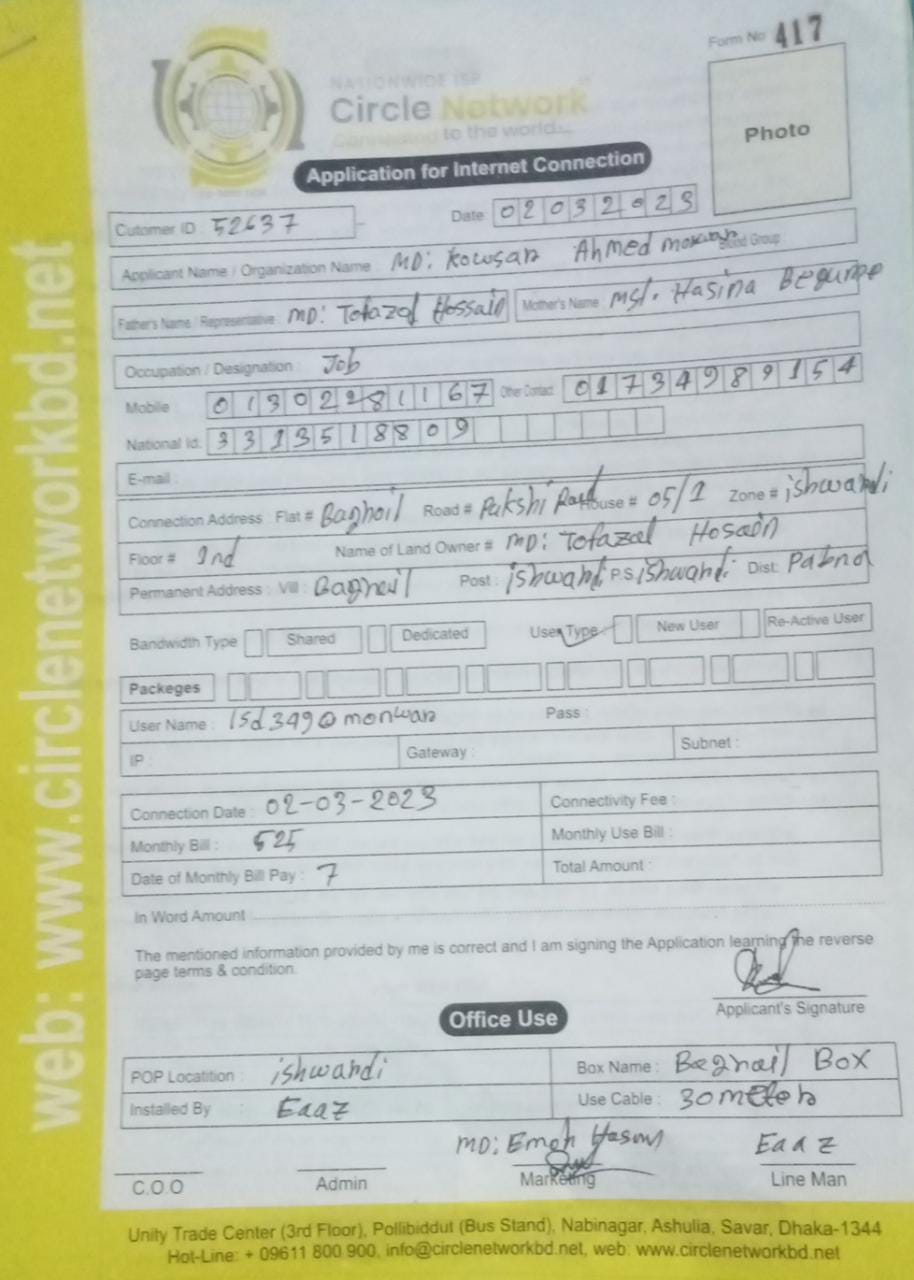 Form No 417
NATIONWIDE ISP
Circle Network
Connected to the world...
Photo
Application for Internet Connection
Cutomer ID : 52637
Date: 02032023
Applicant Name / Organization Name : MD: Kowsar Ahmed monwar Blood Group
Father's Name / Representative : MD: Tofazal Hossain Mother's Name : Mst. Hasina Begume
Occupation / Designation : Job
Mobile : 01302281167 Other Contact: 01734989154
National Id: 3313518809
E-mail :
Connection Address : Flat # Baghoil Road # Pakshi Road House # 05/1 Zone # ishwardi
Floor # 2nd Name of Land Owner # MD: Tofazal Hosain
Permanent Address : Vill : Baghoil Post : ishwardi P.S ishwardi Dist: Pabna
Bandwidth Type Shared Dedicated User Type New User Re-Active User
Packeges
User Name : isd349@monwar Pass :
IP : Gateway : Subnet :
Connection Date : 02-03-2023 Connectivity Fee :
Monthly Bill : 525 Monthly Use Bill :
Date of Monthly Bill Pay : 7 Total Amount :
In Word Amount
The mentioned information provided by me is correct and I am signing the Application learning the reverse
page terms & condition.
Applicant's Signature
Office Use
POP Locatition : ishwardi Box Name : Baghail Box
Installed By : Eaaz Use Cable : 30 meter
MD: Emon Hasan Eaaz
C.O.O Admin Marketing Line Man
Unity Trade Center (3rd Floor), Pollibiddut (Bus Stand), Nabinagar, Ashulia, Savar, Dhaka-1344
Hot-Line: + 09611 800 900, info@circlenetworkbd.net, web: www.circlenetworkbd.net
web: www.circlenetworkbd.net